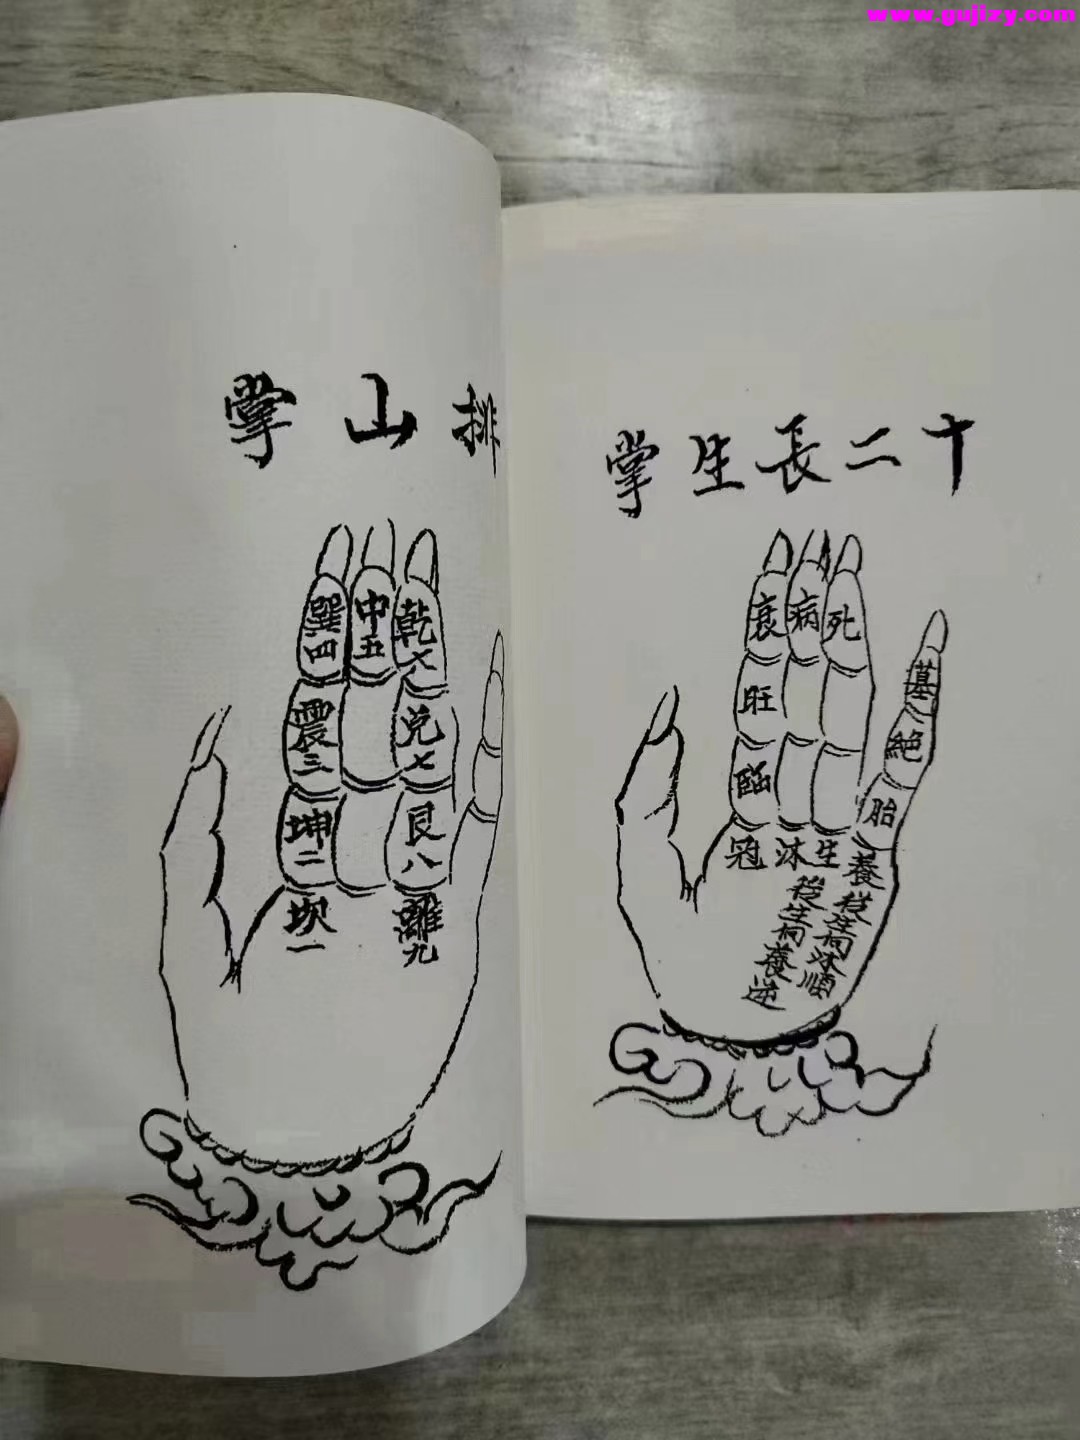 www.gujizy.com
十二長生掌
死
病
衰
旺
臨
冠
沐
生
養
胎
絕
墓
從生向沐順
從生向養逆
排山掌
乾六
中五
巽四
兌七
震三
艮八
坤二
離九
坎一